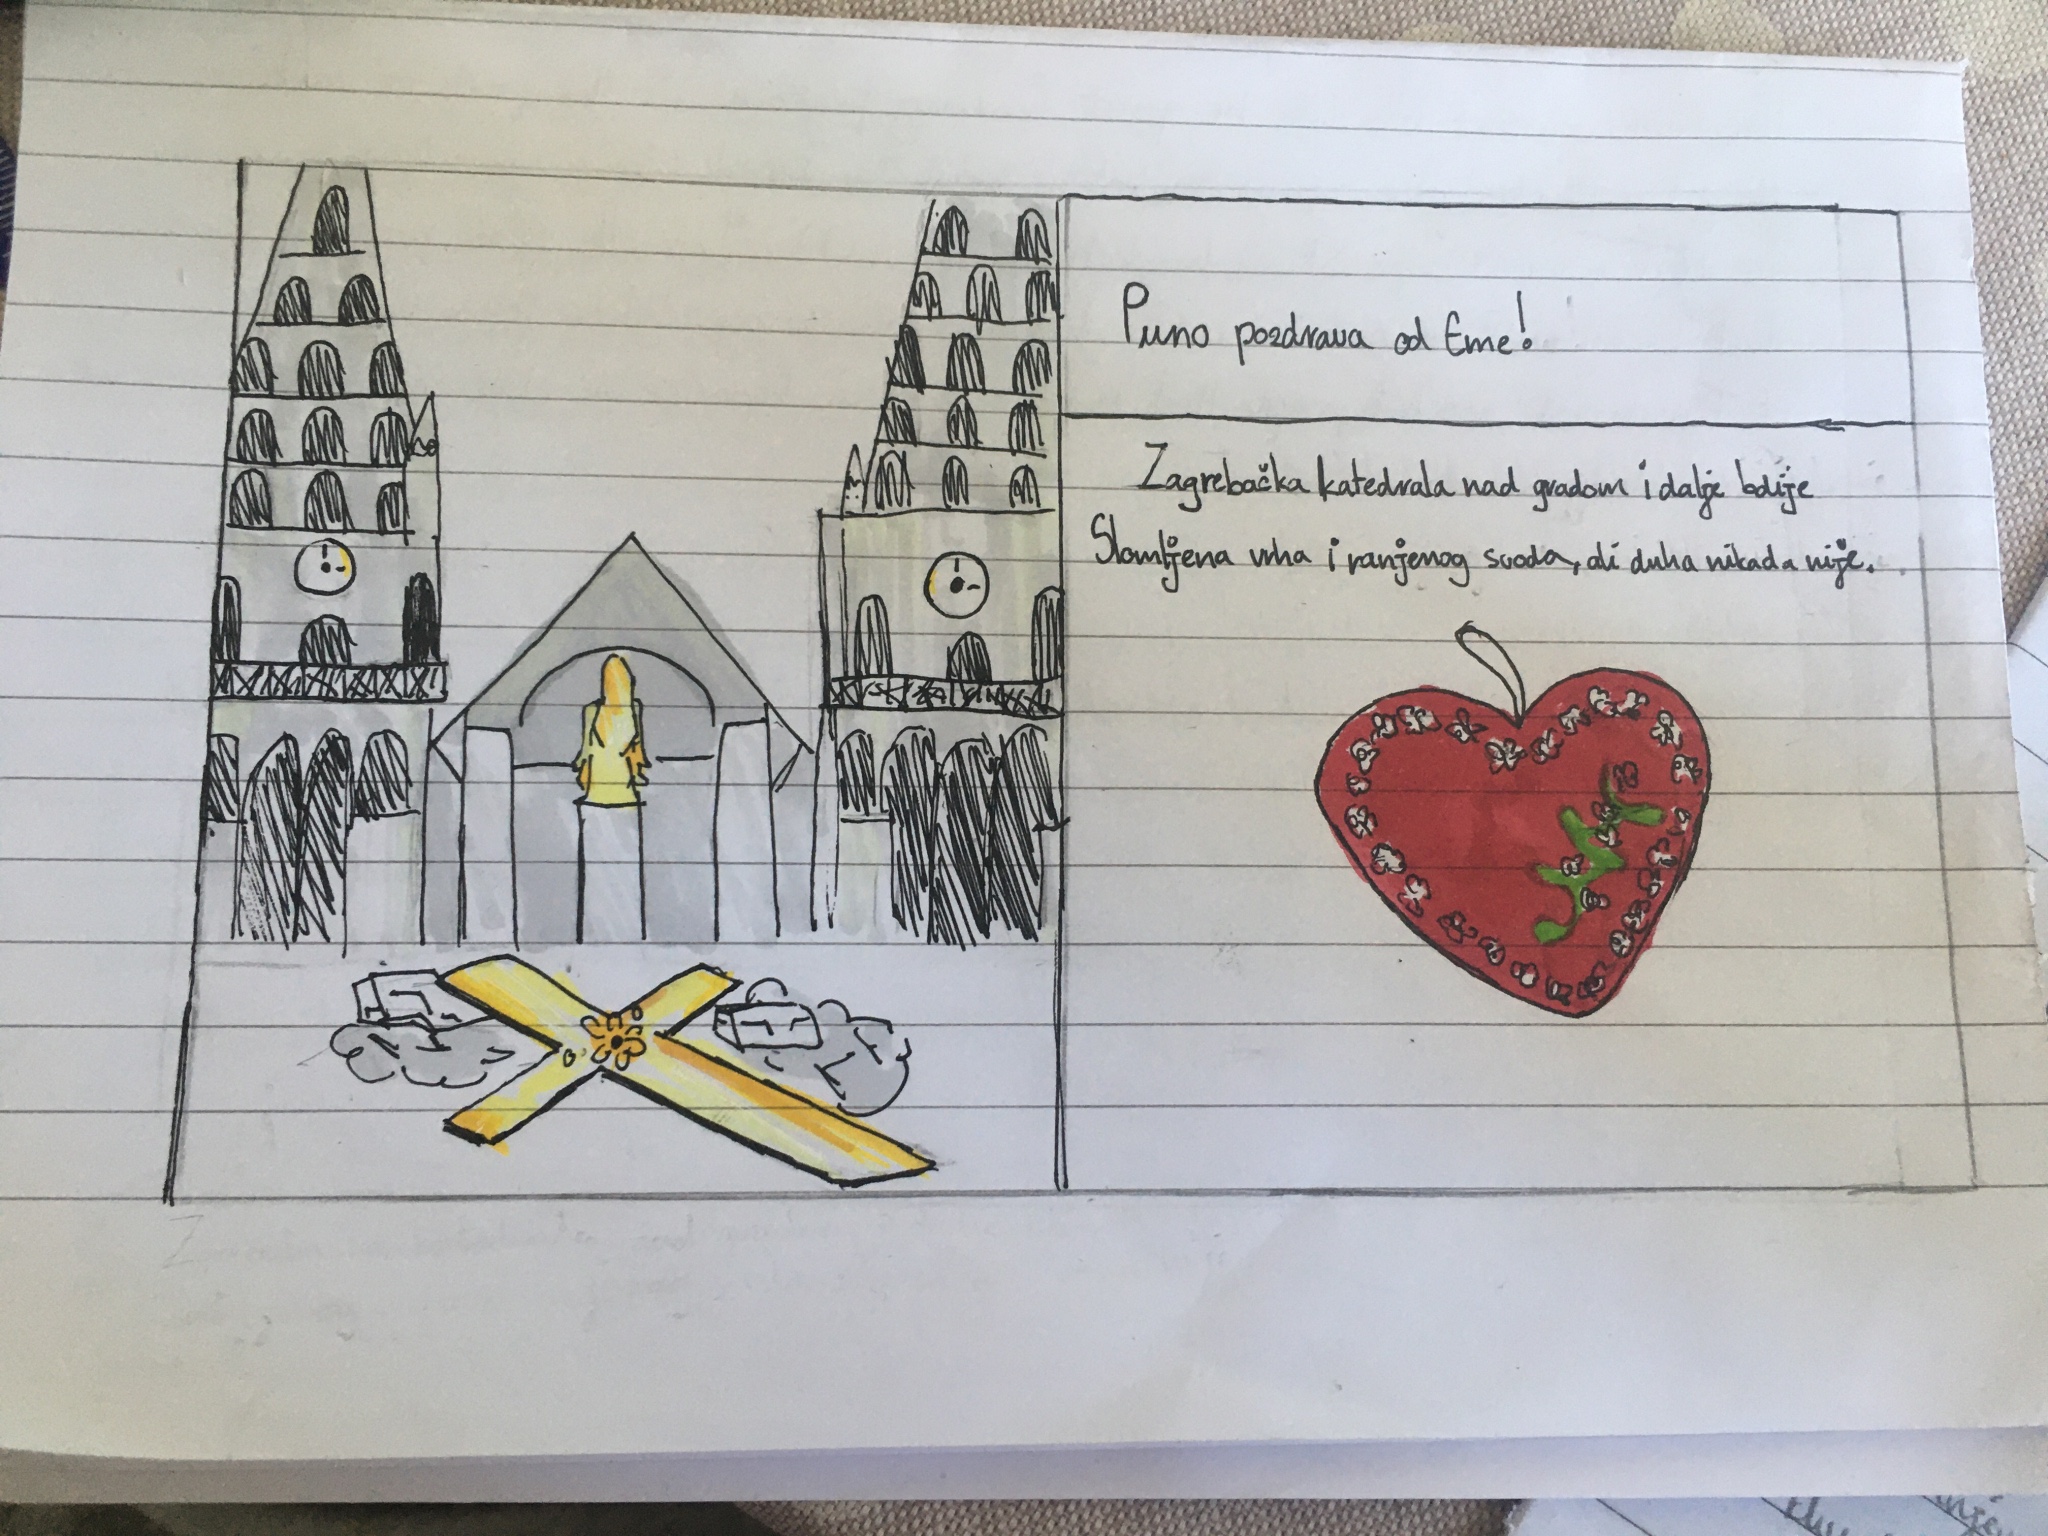 Puno pozdrava od Eme!
Zagrebačka katedrala nad gradom i dalje bdije
Slomljena vrha i ranjenog svoda, ali duha nikada nije.